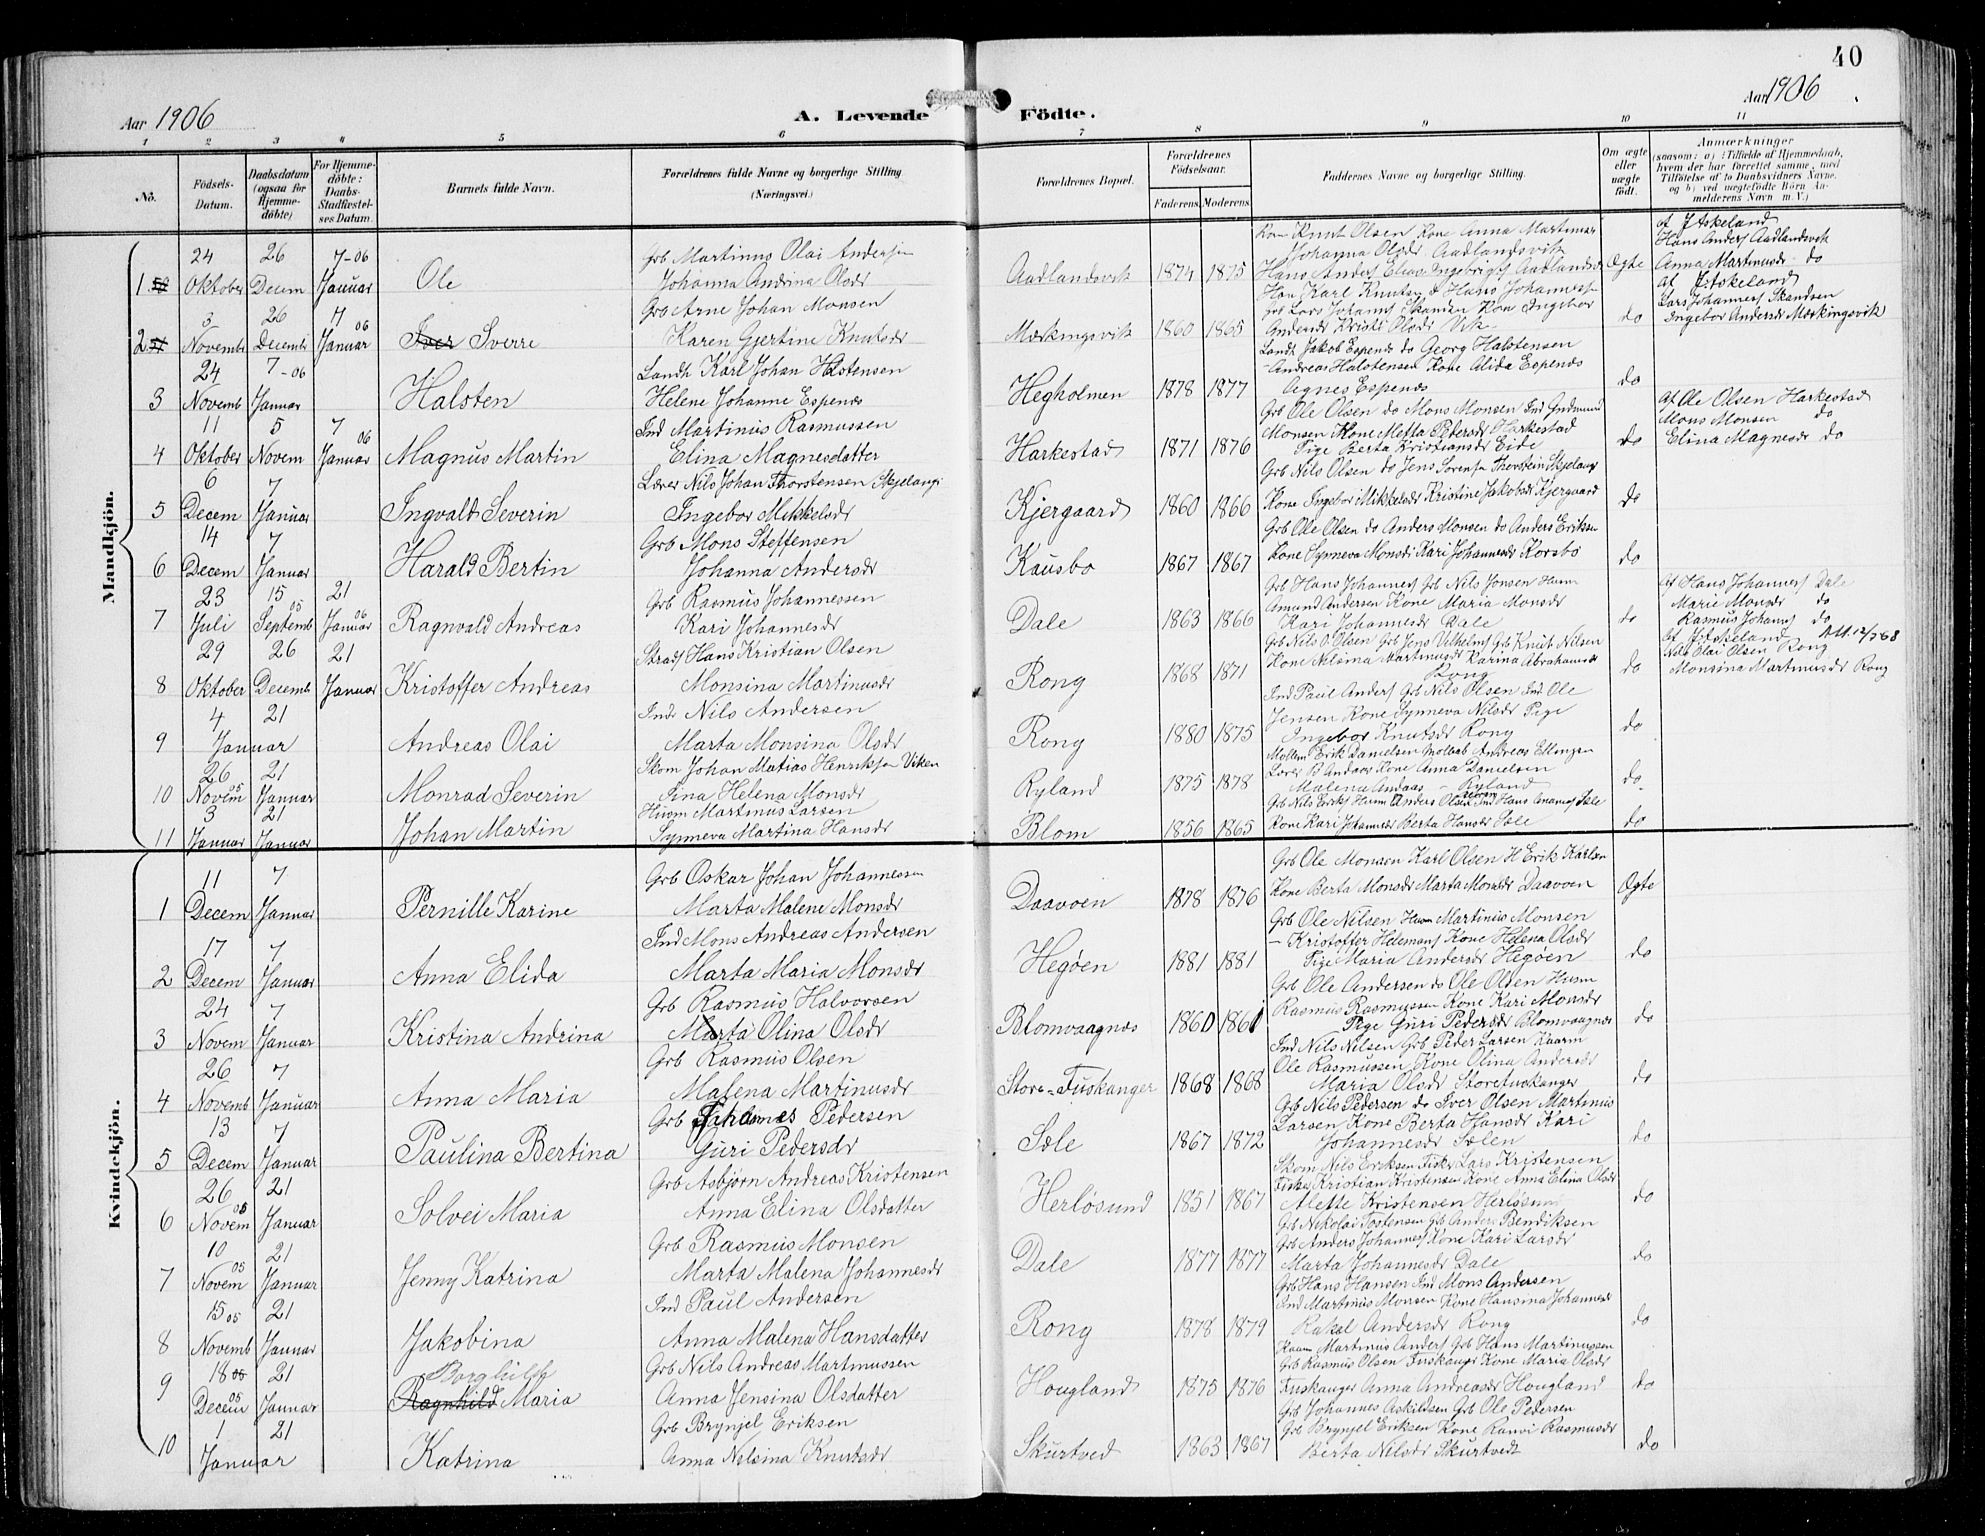 40
Aar 1906
A. Levende Födte.
Aar 1906
1 2 3 4 5 6 7 8 9 10 11
No.
Födsels-Datum.
Daabsdatum (ogsaa for Hjemmedöbte)
For Hjemmedöbte: Daabs-Stadfæstelses Datum.
Barnets fulde Navn.
Forældrenes fulde Navne og borgerlige Stilling (Næringsvei.)
Forældrenes Bopæl.
Forældrenes Födselsaar.
Faderens Moderens
Faddernes Navne og borgerlige Stilling.
Om ægte eller uægte født.
Anmærkninger
(saasom: a) i Tilfælde af Hjemmedaab, hvem der har forrettet samme, med Tilföielse af to Daabsvidners Navne, og b) ved uægtefödte Börn Anmelderens Navn m. V.)
Mandkjön.
1 24 Oktober 26 Decem 7-06 Januar Ole
Grb Martinus Olai Andersen
Johanna Andrina Olsdr
Aadlandsvik 1874 1875
Knut Olsen Kone Anna Martinusdr
Johanna Olsdr Aadlandsvik
Ægte
af J Askeland
Hans Anders Aadlandsvik
Anna Martinusdr do
2 3 Novemb 26 Decemb 7 06 Januar Iver Sverre
Grb Arne Johan Monsen
Karen Gjertine Knutsdr
Mærkingsvik 1860 1865
Karl Knutsen Hans Johanness
Grb Lars Johanns Skandsen Kone Ingebor
Andersdr Kristi Olsdr Vik
do
af J Askeland
Lars Johanness Skandsen
Ingebor Andersdr Mærkingsvik
3 24 Novemb 7-06 Januar Halsten
Landh Karl Johan Halstensen
Helene Johanne Espenes
Hegholmen 1878 1877
Landh Jakob Espenes do Georg Halstensen
Andreas Halstensen Kone Alida Espenæs
Agnes Espenæs
do
4 11 Oktober 5 Novem 7 06 Januar Magnus Martin
Ind Martinus Rasmussen
Elina Magnesdatter
Harkestad 1871 1876
Grb Ole Olsen do Mons Monsen Ind Gudmund
Monsen Kone Metta Pedersdr Harkestad
Pige Berta Kristiansdr Eide
do
af Ole Olsen Harkestad
Mons Monsen do
Elina Magnesdr do
5 6 Decem 7 Januar Ingvald Severin
Lærer Nils Johan Thorstensen Skjelanger
Ingebor Mikkelsdr
Kjergaard 1860 1866
Grb Nils Olsen do Jens Sørensen Thorstein Skjelang
Kone Ingebor Mikkelsdr Kristine Jakobsdr Kjergaard
do
6 14 Decem 7 Januar Harald Bertin
Grb Mons Steffensen
Johanna Andersdr
Kausbø 1867 1867
Grb Ole Olsen do Anders Monsen do Anders Eriksen
Kone Synneva Monsdr Kari Johannesdr Korsbø
do
7 23 Juli 15 Septemb 05 21 Januar 06 Ragnvald Andreas
Grb Rasmus Johannessen
Kari Johannesdr
Dale 1863 1866
Grb Hans Johanness Grb Nils Jonsen Husm
Amund Andersen Kone Maria Monsdr
Kari Johannesdr Dale
do
af Hans Johanness Dale
Marie Monsdr do
Rasmus Johanns do
8 29 Oktober 26 Decemb 21 Januar Kristoffer Andreas
Strads Hans Kristian Olsen
Monsina Martinusdr
Rong 1868 1871
Grb Nils O. Olsen Grb Jens Vilhelms Grb Knut Nilsen
Kone Nilsina Martinusdr Karina Abrahamsdr
Rong
do
af J Askeland Att. 12/5 68
Nils Olai Olsen Rong
Monsina Martinusdr Rong
9 4 21 Januar Andreas Olai
Ind Nils Andersen
Marta Monsina Olsdr
Rong 1880 1875
Ind Paul Anders Grb Nils Olsen Ind Ole
Jensen Kone Synneva Nilsdr Pige
Ingebor Knutsdr Rong
do
10 26 Novem 05 21 Januar Monrad Severin
Skom Johan Matias Henriksen Viken
Sina Helena Monsdr
Ryland 1875 1878
Erik Danielsen Andreas Ellingsen
Lærer B Andaas Kone Anna Danielsen
Malena Andaas - Ryland
do
11 3 Januar 21 Januar Johan Martin
Husm Martinus Larsen
Synneva Martina Hansdr
Blom 1856 1865
Grb Nils Eriks Husm Anders Olsen Ind Hans Sæle
Kone Kari Johannesdr Berta Hansdr Sæle
do
Kvindekjön.
1 11 Decem 7 Januar Pernille Karine
Grb Oskar Johan Johannessen
Marta Malene Monsdr
Daavøen 1878 1876
Grb Ole Monsen Karl Olsen H Erik Karlsen
Kone Berta Monsdr Marta Monsdr Daavøen
Ægte
2 17 Decem 7 Januar Anna Elida
Ind Mons Andreas Andersen
Marta Maria Monsdr
Hegøen 1881 1881
Grb Ole Nilsen Husm Martinus Monsen
- Kristoffer Helemans Kone Helena Olsdr
Pige Maria Andersdr Hegøen
do
3 24 Novem 7 Januar Kristina Andrina
Grb Rasmus Halvorsen
Marta Olina Olsdr
Blomvaagnæs 1860 1861
Grb Ole Andersen do Ole Olsen Husm
Rasmus Rasmussen Kone Kari Monsdr
Pige Guri Pedersdr Blomvaagnæs
do
4 26 Novemb 7 Januar Anna Maria
Grb Rasmus Olsen
Malena Martinusdr
Store-Fuskanger 1868 1868
Ind Nils Nilsen Grb Peder Larsen Kaarm
Ole Rasmussen Kone Olina Andersdr
Maria Olsdr Storefuskanger
do
5 13 Decem 7 Januar Paulina Bertina
Grb Johannes Pedersen
Guri Pedersdr
Sæle 1867 1872
Grb Nils Pedersen do Iver Olsen Martinus
Larsen Kone Berta Hansdr Kari
Johannesdr Sælen
do
6 26 Novem 05 21 Januar Solvei Maria
Grb Asbjørn Andreas Kristensen
Anna Elina Olsdatter
Herløsund 1851 1867
Skom Nils Eriksen Fisker Lars Kristensen
Fisker Kristian Kristensen Kone Anna Elina Olsdr
Alette Kristensen Herløsund
do
7 10 Novem 05 21 Januar Jenny Katrina
Grb Rasmus Monsen
Marta Malena Johannesdr
Dale 1877 1877
Grb Nikolai Tostensen Grb Anders Bendiksen
Grb Anders Johanness Kone Kari Larsdr
Marta Johannesdr Dale
do
8 15 05 Novemb 21 Januar Jakobina
Ind Paul Andersen
Anna Malena Hansdatter
Rong 1878 1879
Grb Hans Hansen Ind Mons Andersen
Ind Martinus Monsen Kone Hansina Johannesdr
Rakel Andersdr Rong
do
9 18 Decem 05 21 Januar Borghild Ragnhild Maria
Grb Nils Andreas Martinussen
Anna Jensina Olsdatter
Hougland 1875 1876
Martinus Anders Grb Hans Martinussen
Grb Rasmus Olsen Fuskanger Kone Maria Olsdr
Fuskanger Anna Andreasdr Hougland
do
10 1 21 Januar Katrina
Grb Brynjel Eriksen
Anna Nilsina Knutsdr
Skurtved 1863 1867
Grb Johannes Askildsen Grb Ole Pedersen
Grb Brynjel Eriksen Kone Ranvi Rasmusdr
Berta Nilsdr Skurtvedt
do